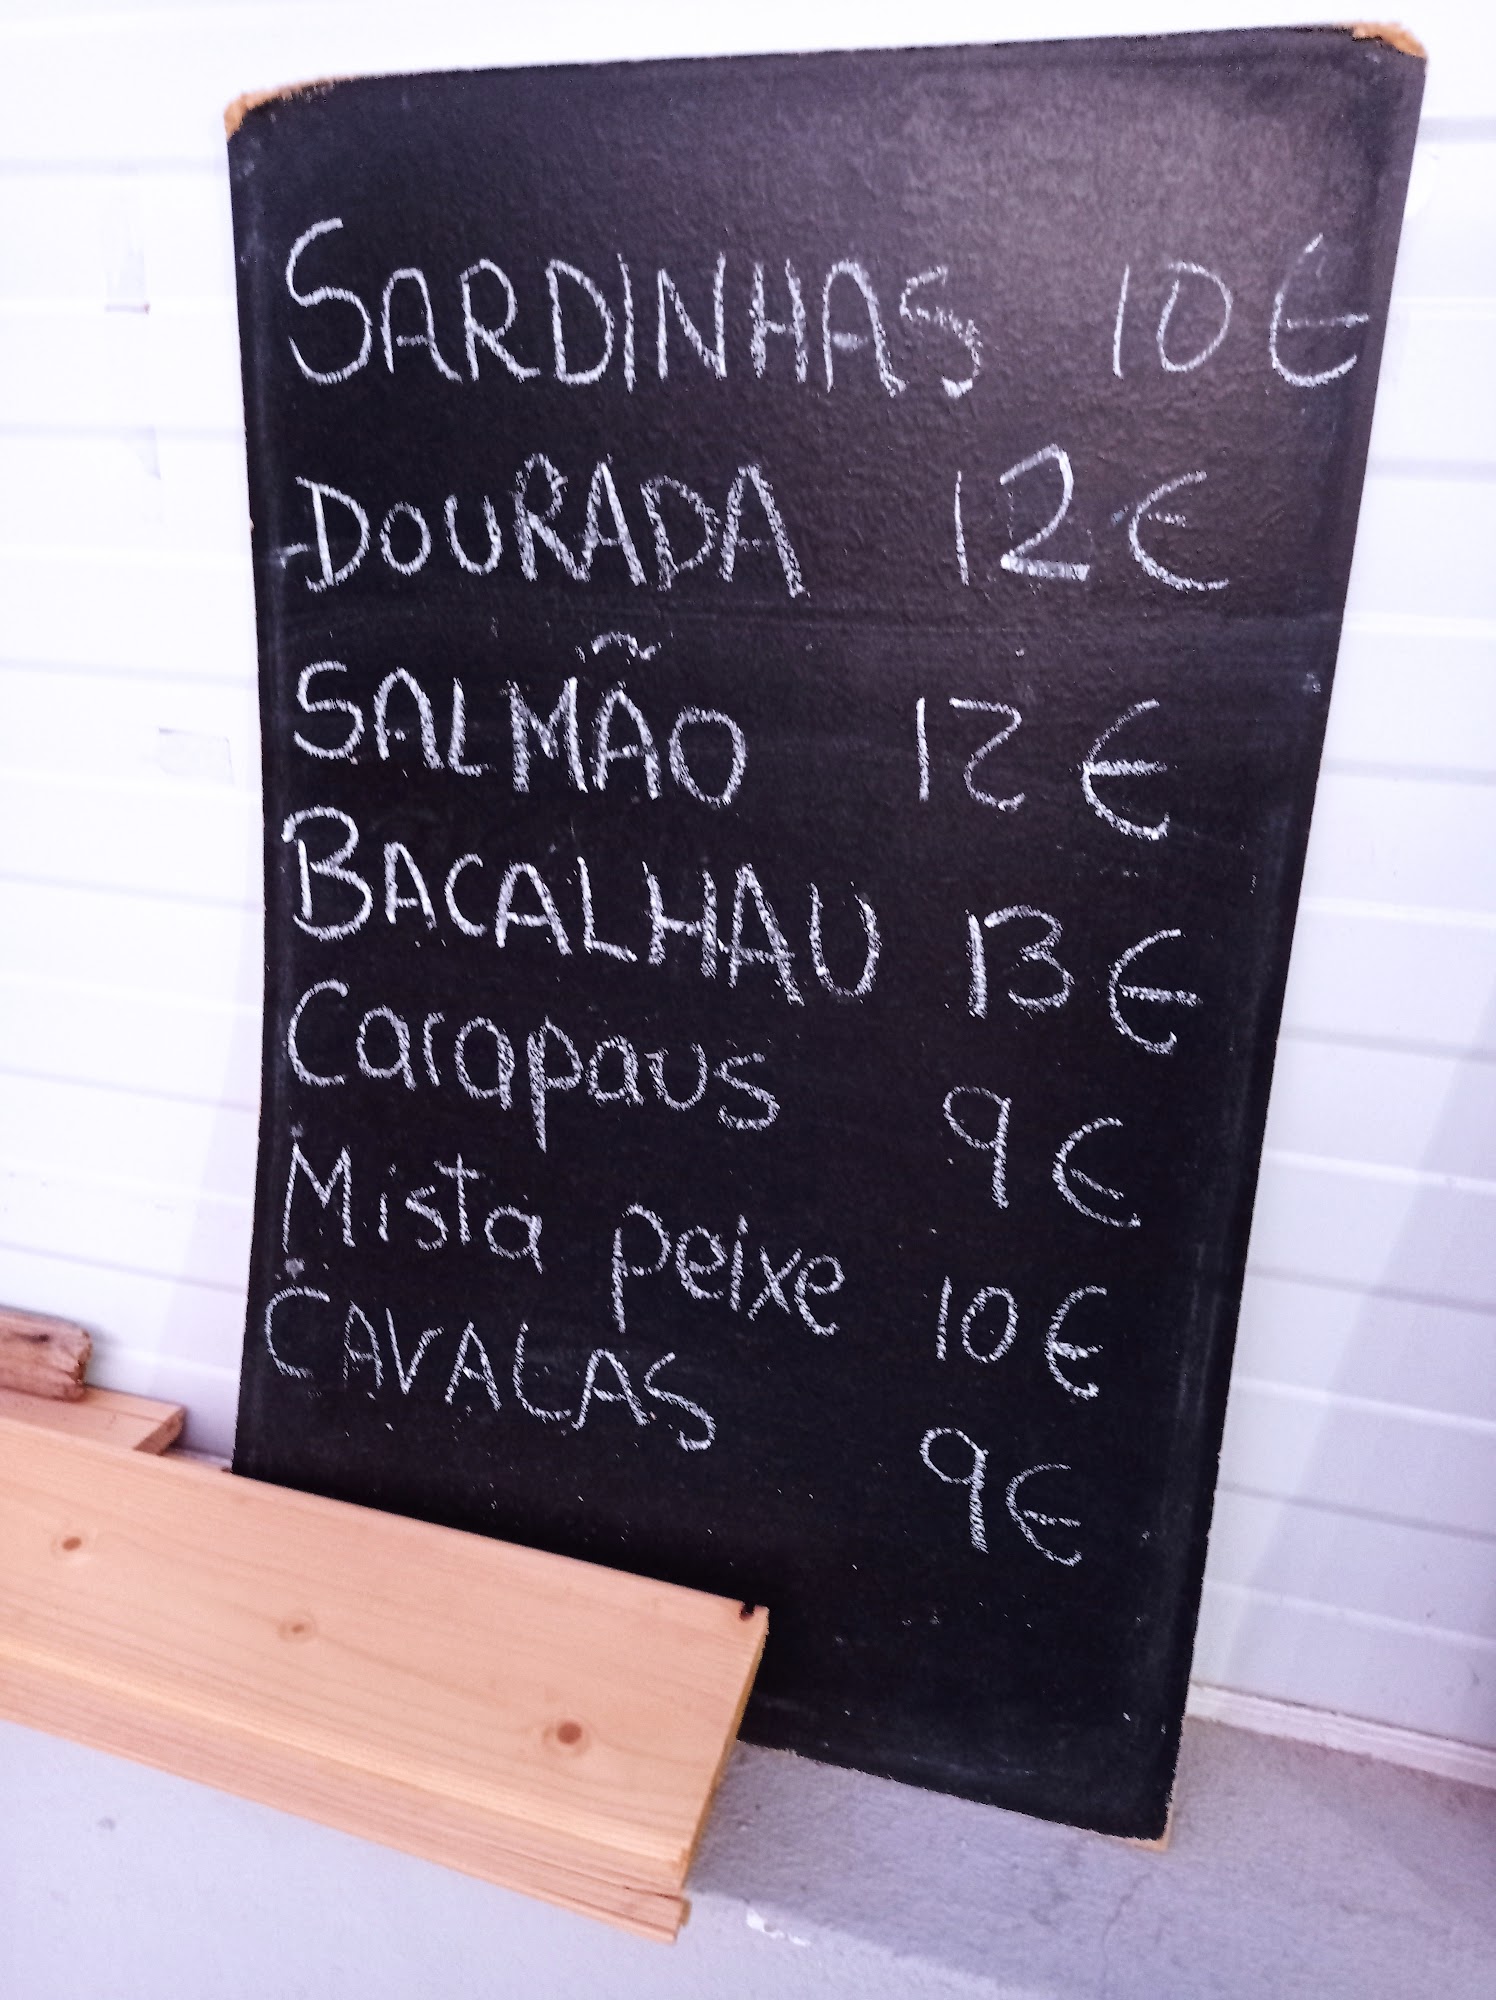 SARDINHAS 10€
DOURADA 12€
SALMÃO 12€
BACALHAU 13€
Carapaus 9€
Mista peixe 10€
CAVALAS 9€